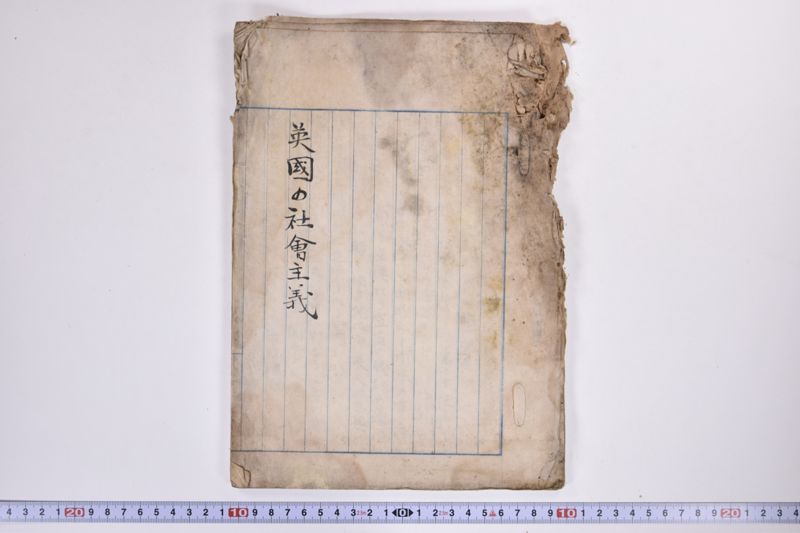 英國の社會主義
4 3 2 1 20 9 8 7 6 5 4 3 2 1 10 9 8 7 6 5 4 3 2 1 0 1 2 3 4 5 6 7 8 9 10 1 2 3 4 5 6 7 8 9 20 1 2 3 4